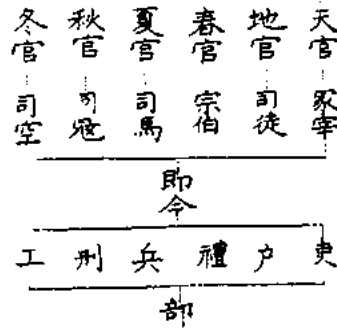 天官 冢宰
地官 司徒
春官 宗伯
夏官 司馬
秋官 司寇
冬官 司空
即今
吏 户 禮 兵 刑 工
部